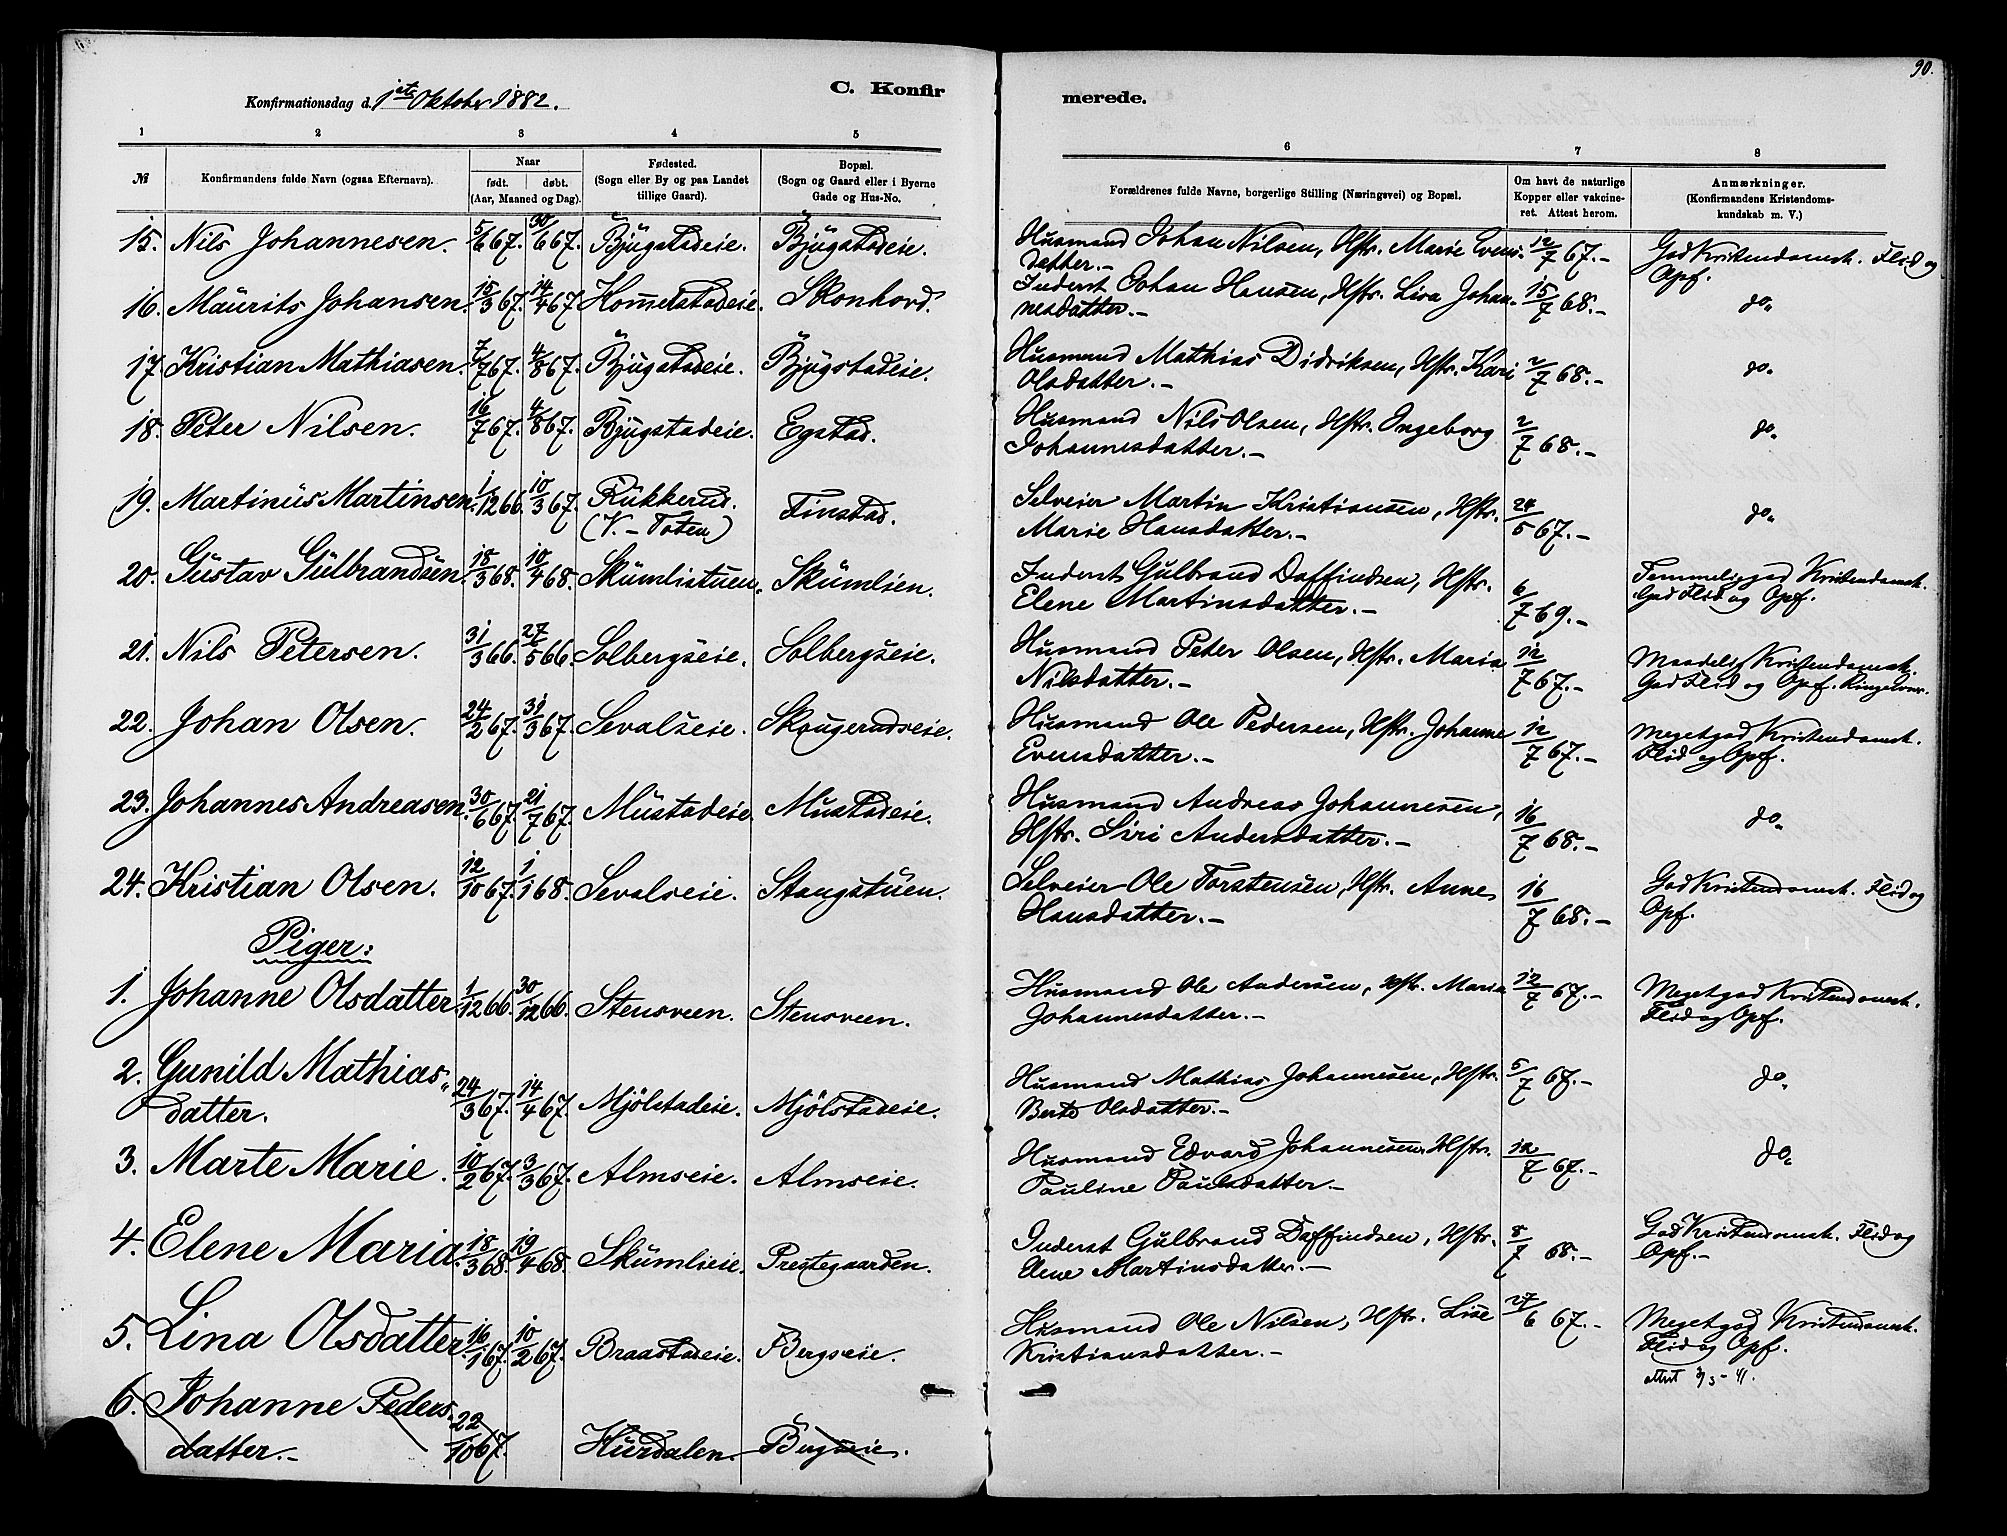 90.
Konfirmationsdag d. 1ste Oktober 1882.
C. Konfir
merede.
1 2 3 4 5 6 7 8
№
Konfirmandens fulde Navn (ogsaa Efternavn).
Naar
født. døbt.
(Aar, Maaned og Dag).
Fødested.
(Sogn eller By og paa Landet
tillige Gaard).
Bopæl.
(Sogn og Gaard eller i Byerne
Gade og Hus-No.
Forældrenes fulde Navne, borgerlige Stilling (Næringsvei) og Bopæl.
Om havt de naturlige
Kopper eller vakcine-
ret. Attest herom.
Anmærkninger.
(Konfirmandens Kristendoms-
kundskab m. V.)
15. Nils Johannesen. 5/6 67. 30/6 67. Bjugstadeie. Bjugstadeie. Husmand Johan Nilsen, Hstr. Marie Evens- 12/7 67.- God Kristendomsk. Flid og
datter.- Opf.
16. Maurits Johansen. 15/3 67. 14/4 67. Hommelstadeie. Skonhord. Inderst Johan Hansen, Hstr. Lisa Johan- 15/7 68.- do.
nesdatter.-
17. Kristian Mathiasen. 7/7 67. 4/8 67. Bjugstadeie. Bjugstadeie. Husmand Mathias Didriksen, Hstr. Kari 2/7 68.- do.
Olsdatter.-
18. Peter Nilsen. 16/7 67. 4/8 67. Bjugstadeie. Egstad. Husmand Nils Olsen, Hstr. Ingeborg 2/7 68.- do.
Johannesdatter.-
19. Martinus Martinsen. 1/12 66. 10/3 67. Rukkerud. Finstad. Selveier Martin Kristiansen, Hstr. 24/5 67.- do.
(V.-Toten) Marie Hansdatter.-
20. Gustav Gulbrandsen. 18/3 68. 10/4 68. Skumlistuen. Skumlien. Inderst Gulbrand Daffindsen, Hstr. 6/7 69.- Temmelig god Kristendomsk.
Elene Martinsdatter.- God Flid og Opf.
21. Nils Petersen. 31/3 66. 27/5 66. Solbergseie. Solbergseie. Husmand Peter Olsen, Hstr. Maria 12/7 67.- Maadelig Kristendomsk.
Nilsdatter.- God Flid og Opf.
22. Johan Olsen. 24/2 67. 31/3 67. Sevalseie. Skougerudseie. Husmand Ole Pedersen, Hstr. Johanne 12/7 67.- Meget god Kristendomsk.
Evensdatter.- Flid og Opf.
23. Johannes Andreasen. 30/6 67. 21/7 67. Mustadeie. Mustadeie. Husmand Andreas Johannesen, 16/7 68.- do.
Hstr. Siri Andersdatter.-
24. Kristian Olsen. 12/10 67. 1/1 68. Sevalseie. Stangstuen. Selveier Ole Torstensen, Hstr. Anne 16/7 68.- God Kristendomsk. Flid og
Hansdatter.- Opf.
Piger:
1. Johanne Olsdatter. 1/12 66. 30/12 66. Stensveen. Stensveen. Husmand Ole Andersen, Hstr. Maria 12/7 67.- Meget god Kristendomsk.
Johannesdatter.- Flid og Opf.
2. Gunild Mathias- 24/3 67. 14/4 67. Mjölstadeie. Mjölstadeie. Husmand Mathias Johannesen, Hstr. 5/7 67.- do.
datter. Berte Olsdatter.-
3. Marte Marie. 10/2 67. 3/3 67. Almseie. Almseie. Husmand Edvard Johannesen, Hstr. 12/7 67.- do.
Pauline Paulsdatter.-
4. Elene Maria. 18/3 68. 19/4 68. Skumlieie. Prestegaarden. Inderst Gulbrand Daffindsen, Hstr. 8/7 68.- God Kristendomsk. Flid og
Elene Martinsdatter.- Opf.-
5. Lina Olsdatter. 16/1 67. 10/2 67. Braastadeie. Bergseie. Husmand Ole Nilsen, Hstr. Lise 27/6 67.- Meget god Kristendomsk.
Kristiansdatter.- Flid og Opf.
6. Johanne Peders- 22/10 67. Hurdalen. Bergseie.
datter.-